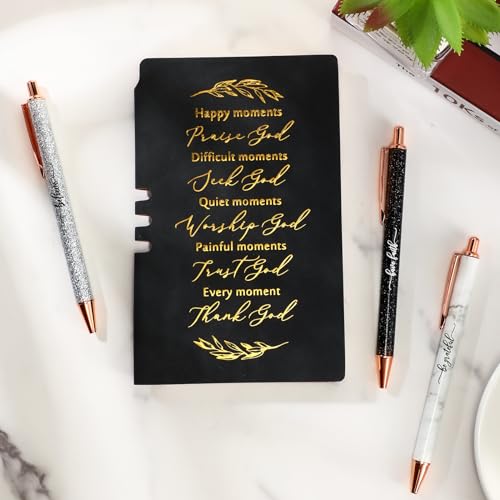 Happy moments
Praise God
Difficult moments
Seek God
Quiet moments
Worship God
Painful moments
Trust God
Every moment
Thank God
have faith
be grateful